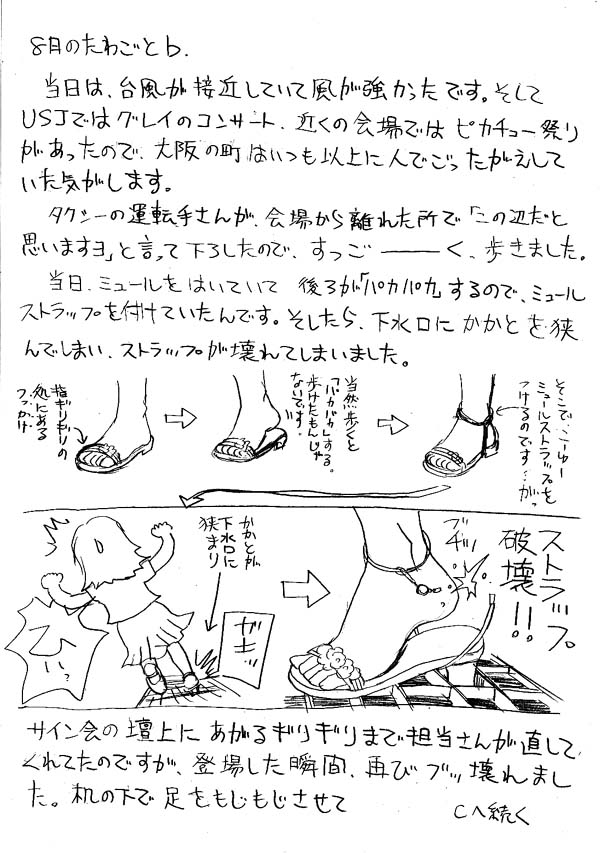 8月のたわごとb.
当日は、台風が接近していて風が強かったです。そして
USJではグレイのコンサート、近くの会場ではピカチュー祭り
があったので、大阪の町はいつも以上に人でごったがえして
いた気がします。
タクシーの運転手さんが、会場から離れた所で「この辺だと
思いますヨ」と言って下ろしたので、すっごーーーく、歩きました。
当日、ミュールをはいていて 後ろが「パカパカ」するので、ミュール
ストラップを付けていたんです。そしたら、下水口にかかとを狭
んでしまい、ストラップが壊れてしまいました。
指ギリギリの
処にある
つっかけ
当然歩くと
「パカパカ」する。
歩けたもんじゃ
ないです。
そこで、こーゆー
ミュールストラップを
つけるのです…がっ
かかとが
下水口に
狭まり
ガキッ
ブチッ
ストラップ
破壊!!
サイン会の壇上にあがるギリギリまで担当さんが直して
くれてたのですが、登場した瞬間、再びブッ壊れまし
た。机の下で足をもじもじさせて
Cへ続く